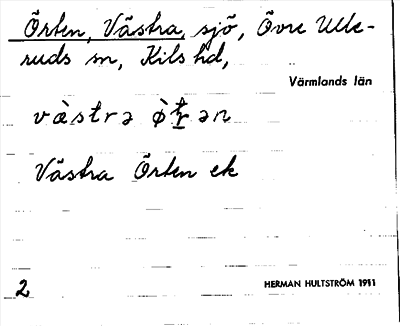 Örten, Västra, sjö, Övre Ulle-
ruds sn, Kils hd,
Värmlands län
væ̀strə ø̀t̠r̠ən
Västra Örten ek
2
HERMAN HULTSTRÖM 1911